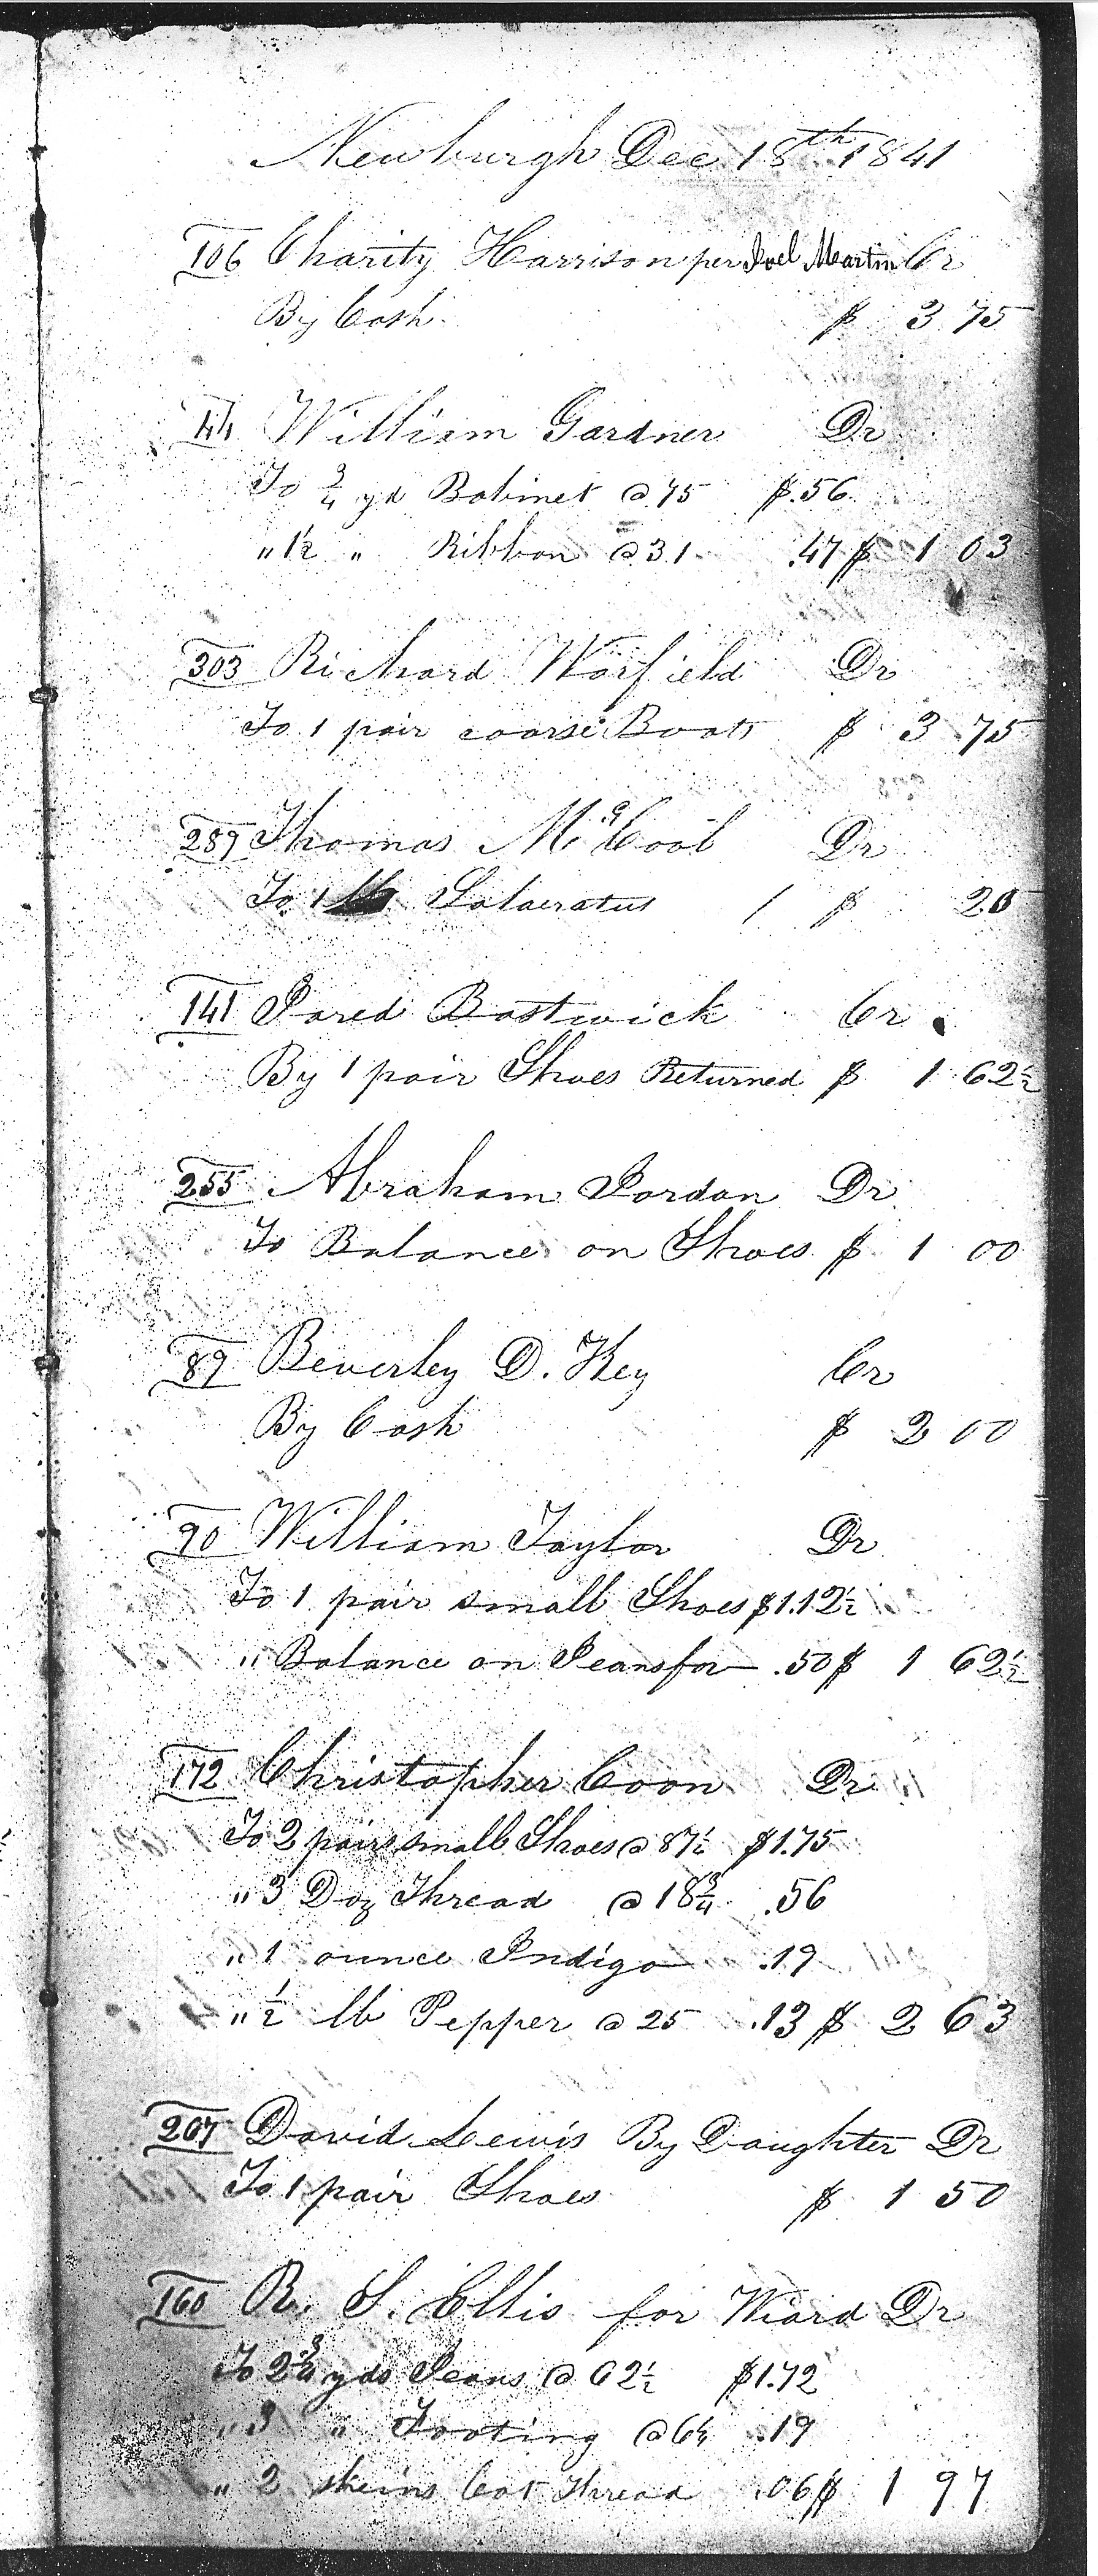 Newburgh Dec 18th 1841
106 Charity Harrison per Joel Martin Cr
By Cash $ 3 75
44 William Gardner Dr
To 3/4 yd Bobinet @ 75 $.56
" 1 1/2 " Ribbon @ 31 .47 $ 1 03
303 Richard Warfield Dr
To 1 pair coarse Boots $ 3 75
289 Thomas McCool Dr
To 1 lb Salaeratus $ 20
141 Jared Bostwick Cr
By 1 pair Shoes Returned $ 1 62 1/2
255 Abraham Jordan Dr
To Balance on Shoes $ 1 00
89 Beverley D. Key Cr
By Cash $ 2 00
90 William Taylor Dr
To 1 pair small Shoes $1.12 1/2
" Balance on Jeans for .50 $ 1 62 1/2
172 Christopher Coon Dr
To 2 pairs small Shoes @ 87 1/2 $1.75
" 3 Doz Thread @ 18 3/4 .56
" 1 ounce Indigo .19
" 1/2 lb Pepper @ 25 .13 $ 2 63
207 David Lewis By Daughter Dr
To 1 pair Shoes $ 1 50
160 R. S. Ellis for Wiard Dr
To 2 3/4 yds Jeans @ 62 1/2 $1.72
" 3 " Footing @ 6 1/4 .19
" 2 skeins Cot Thread .06 $ 1 97